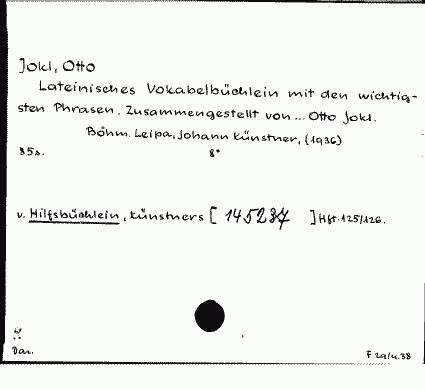 Jokl, Otto
Lateinisches Vokabelbüchlein mit den wichtig-
sten Phrasen. Zusammengestellt von ... Otto Jokl.
Böhm. Leipa, Johann Künstner, (1936)
85 s. 8°
v. Hilfsbüchlein, Künstners [ 145237 ] Hft. 125/126.
Dar. F 29/4.38